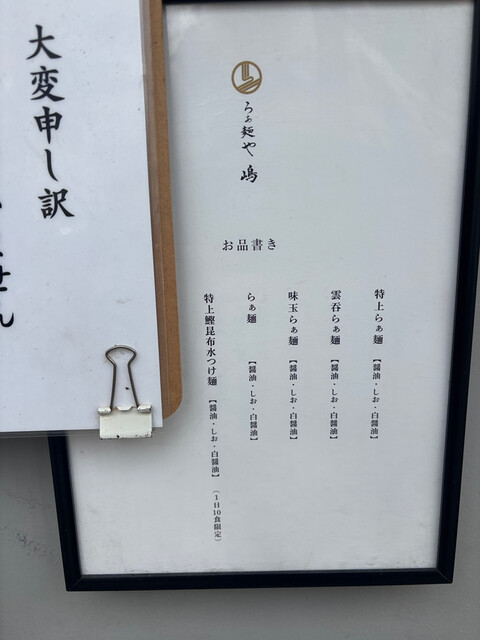 大変申し訳
せん
らぁ麺や 嶋
お品書き
特上らぁ麺 【醤油・しお・白醤油】
雲吞らぁ麺 【醤油・しお・白醤油】
味玉らぁ麺 【醤油・しお・白醤油】
らぁ麺 【醤油・しお・白醤油】
特上鰹昆布水つけ麺 【醤油・しお・白醤油】 (1日10食限定)